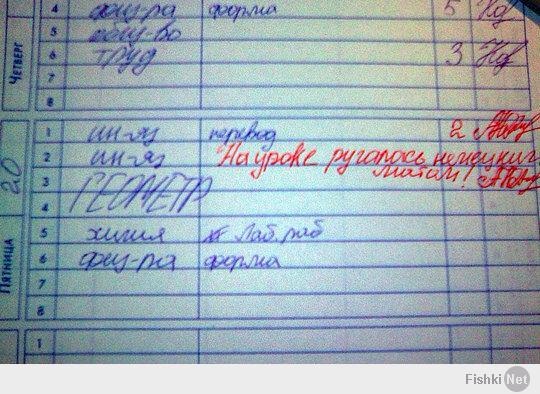 4 физ-ра форма 5
5 общ-во
6 труд 3
7
8
ЧЕТВЕРГ
1 ин-яз перевод 2
2 ин-яз "На уроке ругалась немецким
матом!
3 ГЕОМЕТР
4
5 химия Лаб. раб
6 физ-ра форма
7
8
20
ПЯТНИЦА
1
Fishki Net